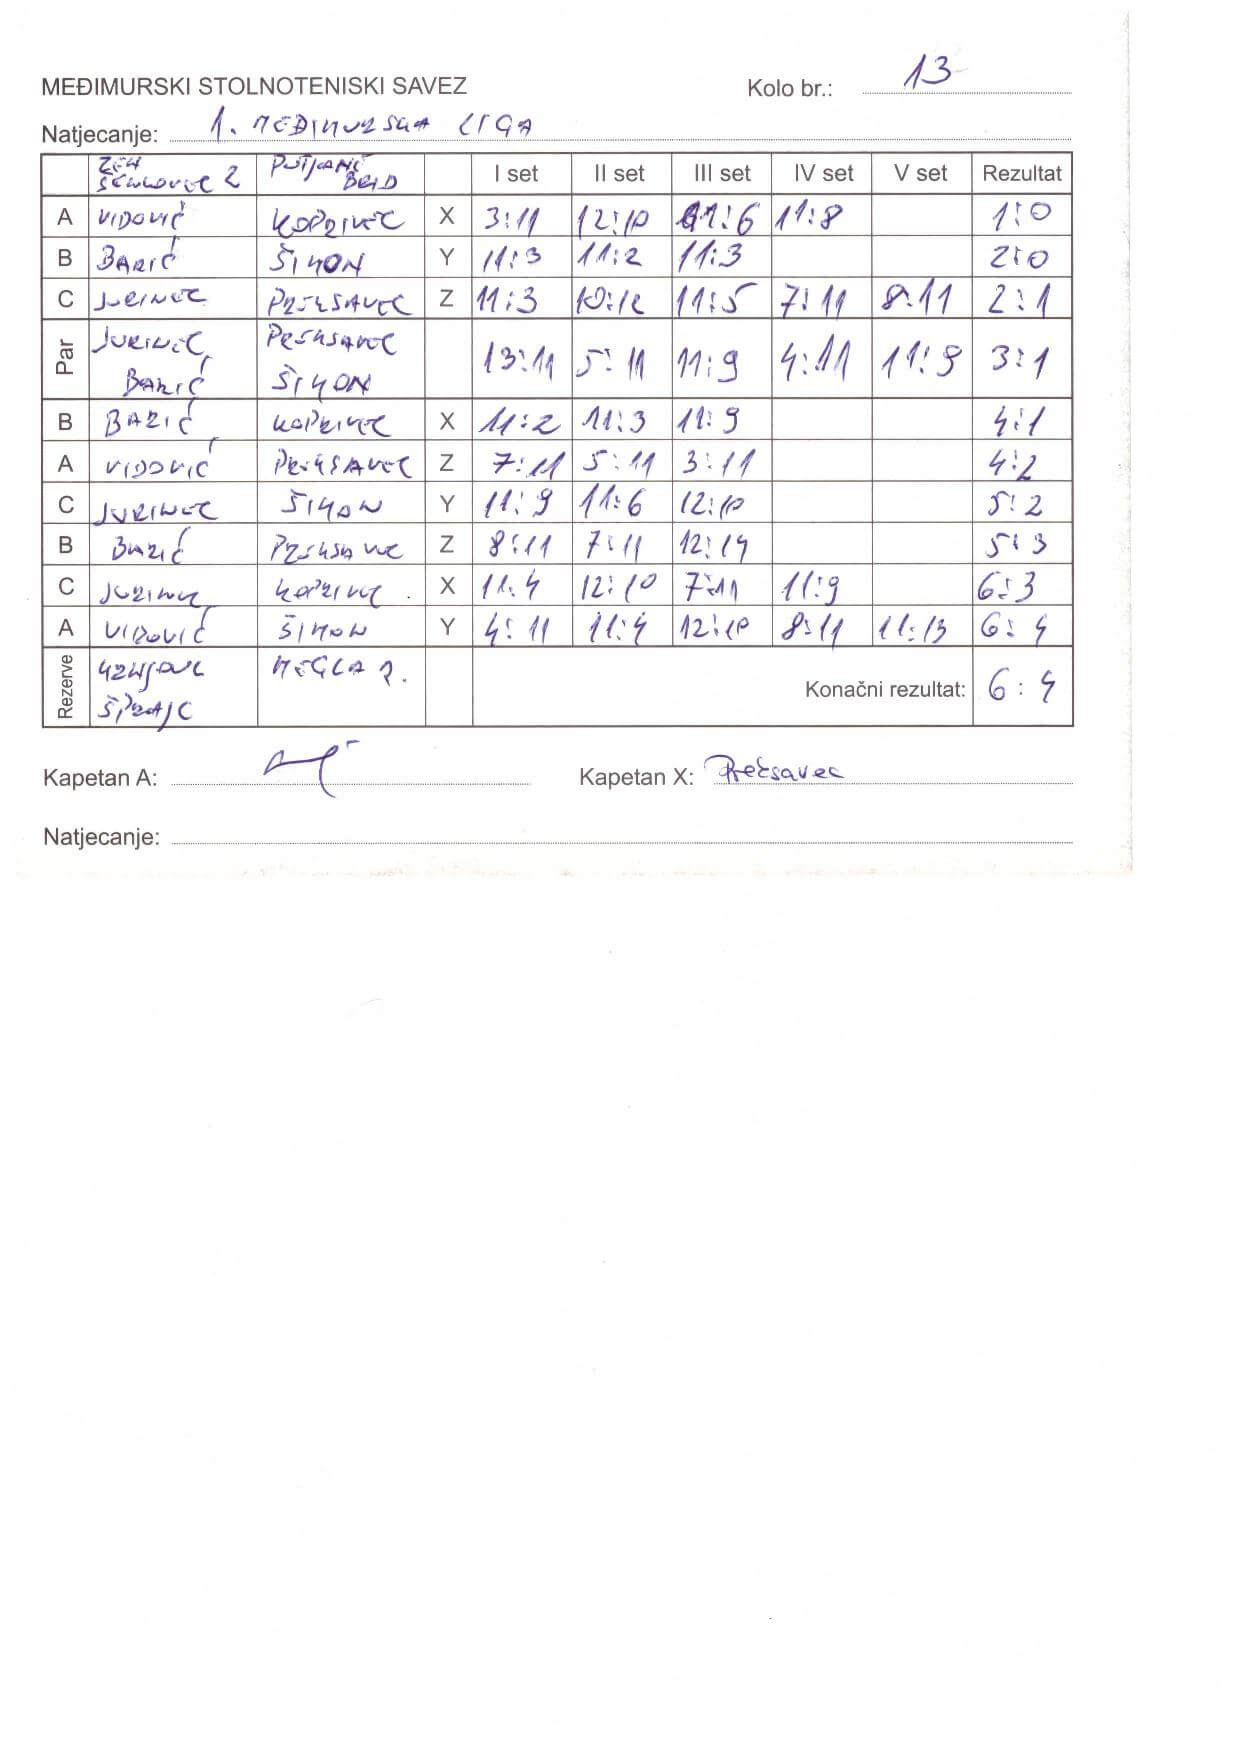 MEĐIMURSKI STOLNOTENISKI SAVEZ Kolo br.: 13
Natjecanje: 1. MEĐIMURSKA LIGA
ŠENKOVEC 2 PUŠĆANE BRID I set II set III set IV set V set Rezultat
A VIDOVIĆ KOPRIVEC X 3:11 12:10 11:6 11:8 1:0
B BARIĆ ŠIMON Y 11:3 11:2 11:3 2:0
C JURINEC PREKSAVEC Z 11:3 10:12 11:5 7:11 8:11 2:1
Par JURINEC, BARIĆ PREKSAVEC ŠIMON 13:11 5:11 11:9 4:11 11:9 3:1
B BARIĆ KOPRIVEC X 11:2 11:3 11:9 4:1
A VIDOVIĆ PREKSAVEC Z 7:11 5:11 3:11 4:2
C JURINEC ŠIMON Y 11:9 11:6 12:10 5:2
B BARIĆ PREKSAVEC Z 8:11 7:11 12:14 5:3
C JURINEC KOPRIVEC X 11:4 12:10 7:11 11:9 6:3
A VIDOVIĆ ŠIMON Y 4:11 11:4 12:10 8:11 11:13 6:4
Rezerve MEGLA R. Konačni rezultat: 6:4
ŠPRAJC
Kapetan A: Kapetan X: Preksavec
Natjecanje: